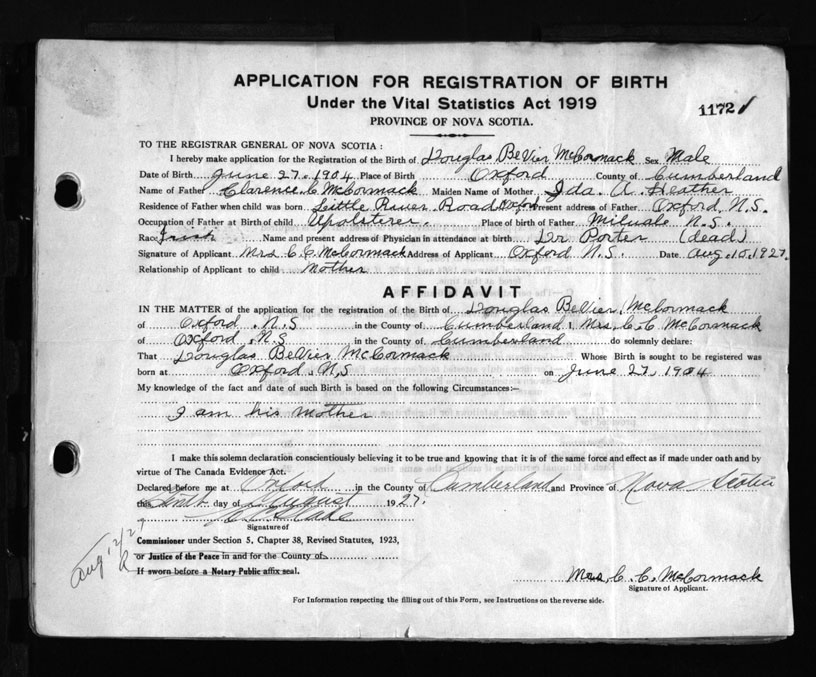 APPLICATION FOR REGISTRATION OF BIRTH
Under the Vital Statistics Act 1919
1172
PROVINCE OF NOVA SCOTIA.
TO THE REGISTRAR GENERAL OF NOVA SCOTIA:
I hereby make application for the Registration of the Birth of Douglas BeVier McCormack Sex Male
Date of Birth June 27. 1904 Place of Birth Oxford County of Cumberland
Name of Father Clarence C McCormack Maiden Name of Mother Ida A. Heather
Residence of Father when child was born Little River Road Oxford Present address of Father Oxford, N.S.
Occupation of Father at Birth of child Upolsterer. Place of birth of Father Milvale N.S.
Race Irish Name and present address of Physician in attendance at birth Dr Porter (dead)
Signature of Applicant Mrs C C McCormack Address of Applicant Oxford N.S. Date Aug. 10. 1927.
Relationship of Applicant to child Mother
AFFIDAVIT
IN THE MATTER of the application for the registration of the Birth of Douglas BeVier McCormack
of Oxford. N.S in the County of Cumberland I, Mrs C. C McCormack
of Oxford. N.S in the County of Cumberland do solemnly declare:
That Douglas BeVier McCormack Whose Birth is sought to be registered was
born at Oxford. N.S on June 27. 1904
My knowledge of the fact and date of such Birth is based on the following Circumstances:—
I am his Mother
I make this solemn declaration conscientiously believing it to be true and knowing that it is of the same force and effect as if made under oath and by
virtue of The Canada Evidence Act.
Declared before me at Oxford in the County of Cumberland and Province of Nova Scotia
this Tenth day of August 1927.
Signature of
Commissioner under Section 5, Chapter 38, Revised Statutes, 1923,
or Justice of the Peace in and for the County of
If sworn before a Notary Public affix seal.
Aug 12/27
Mrs, C. C. McCormack
Signature of Applicant.
For Information respecting the filling out of this Form, see Instructions on the reverse side.